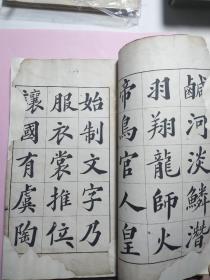 鹹河淡鱗潛
羽翔龍師火
帝鳥官人皇
始制文字乃
服衣裳推位
讓國有虞陶